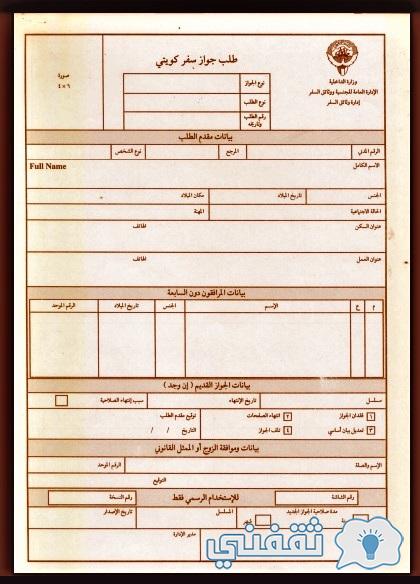 طلب جواز سفر كويتي
وزارة الداخلية
الإدارة العامة للجنسية ووثائق السفر
إدارة وثائق السفر
صورة
٤×٦
نوع الجواز
نوع الطلب
رقم الطلب وتاريخه
بيانات مقدم الطلب
الرقم المدني
المرجع
نوع الشخص
الاسم الكامل
Full Name
الجنس
تاريخ الميلاد
مكان الميلاد
الحالة الاجتماعية
المهنة
عنوان السكن
الهاتف
عنوان العمل
الهاتف
بيانات المرافقون دون السابعة
م
الإسم
الجنس
تاريخ الميلاد
الرقم الموحد
بيانات الجواز القديم ( إن وجد )
مسلسل
تاريخ الإنتهاء
سبب إنتهاء الصلاحية
١ فقدان الجواز
٢ انتهاء الصفحات
توقيع مقدم الطلب
٣ تعديل بيان أساسي
٤ تلف الجواز
التاريخ / /
بيانات وموافقة الزوج أو الممثل القانوني
الإسم والصلة
الرقم الموحد
التوقيع
رقم الشاشة
للإستخدام الرسمي فقط
رقم النسخة
مدة صلاحية الجواز الجديد
المسلسل
تاريخ الإصدار
مدير الإدارة
ثقفني